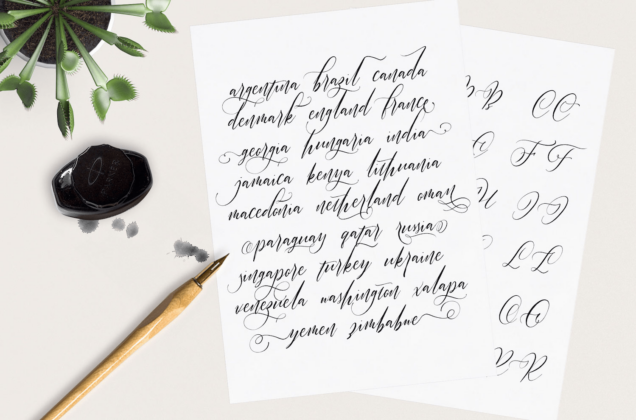 argentina brazil canada
denmark england france
georgia hungaria india
jamaica kenya lithuania
macedonia netherland oman
paraguay qatar russia
singapore turkey ukraine
venezuela washington xalapa
yemen zimbabwe
C C
F F
L L
O O